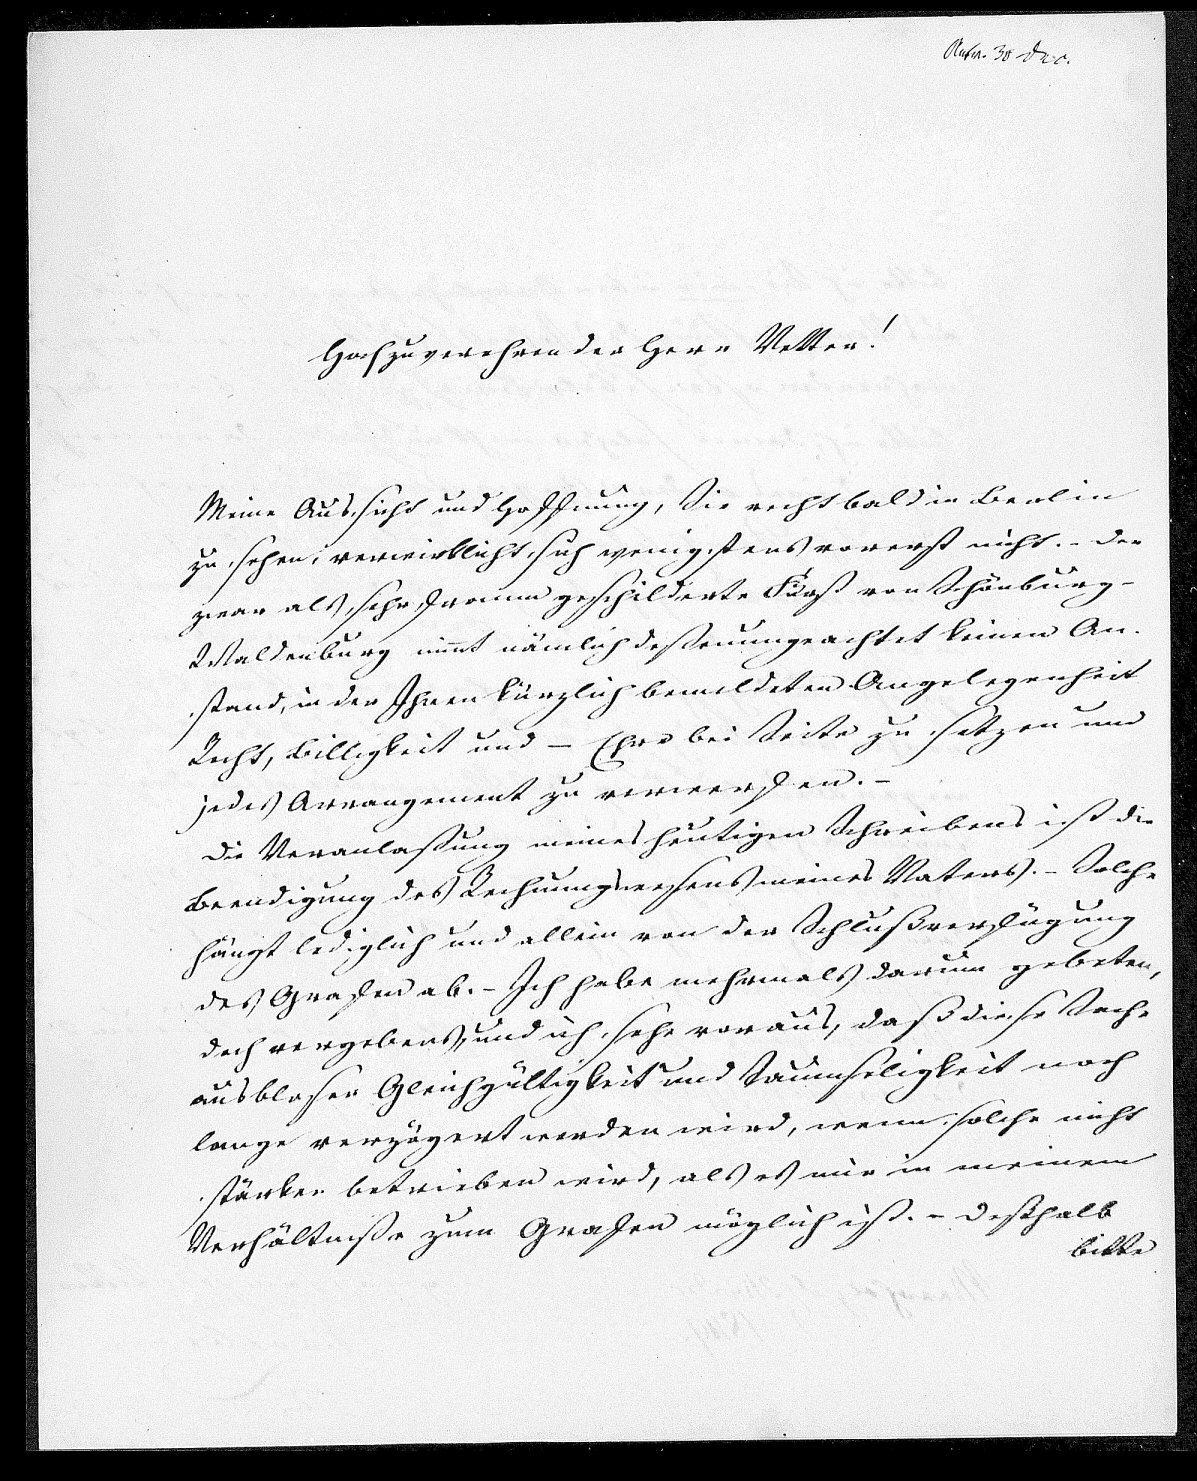 30 Dec.
Hochzuverehrender Herr Vetter!
Meine Aussicht und Hoffnung, Sie recht bald in Berlin
zu sehen, verwirklicht sich wenigstens vorerst nicht. – Der
zwar als sehr fromm geschilderte Fürst von Schönburg-
Waldenburg nimt nämlich deßenungeachtet keinen An-
stand, in der Ihnen kürzlich bemeldeten Angelegenheit
Recht, Billigkeit und – Ehre bei Seite zu setzen und
jedes Arrangement zu verwerfen. –
Die Veranlaßung meines heutigen Schreibens ist die
Beendigung des Rechnungswesens meines Vaters. – Solche
hängt lediglich und allein von der Schlußverfügung
des Grafen ab. – Ich habe mehrmals darum gebeten,
doch vergebens, und ich sehe voraus, daß diese Sache
aus bloser Gleichgültigkeit und Saumseligkeit noch
lange verzögert werden wird, wenn solche nicht
stärker betrieben wird, als es mir in meinem
Verhältniße zum Grafen möglich ist. – Deßhalb
bitte